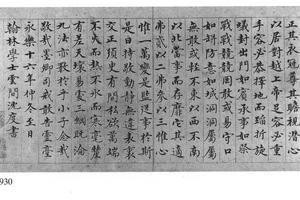 正其衣冠尊其瞻視潛心
以居對越上帝足容必重
手容必恭擇地而蹈折旋
蟻封出門如賓承事如祭
戰戰兢兢罔敢或易守口
如缾防意如城洞洞屬屬
無敢或輕不東以西不南
以北當事而存靡他其適
弗貳以二弗參以三惟心
惟一萬變是監從事於斯
是曰持敬動靜無違表裏
交正須臾有間私欲萬端
不火而熱不冰而寒毫釐
有差天壤易處三綱既淪
九法亦斁於乎小子念哉
敬哉墨卿司戒敢告靈臺
永樂十六年仲冬至日
翰林學士雲間沈度書
930